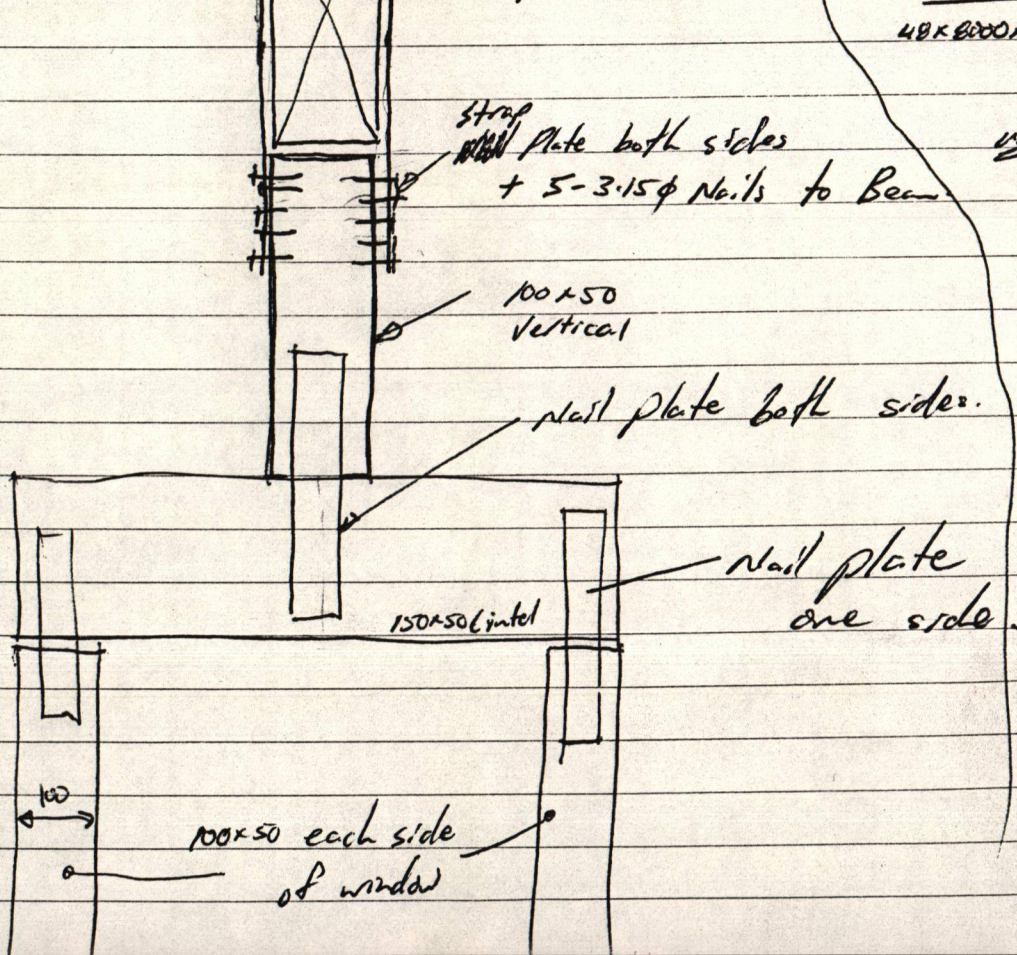 48x8000
strap
Plate both sides
+ 5-3.15φ Nails to Beam.
100x50
Vertical
Nail plate both sides.
Nail plate
one side.
150x50 Lintel
100
100x50 each side
of window